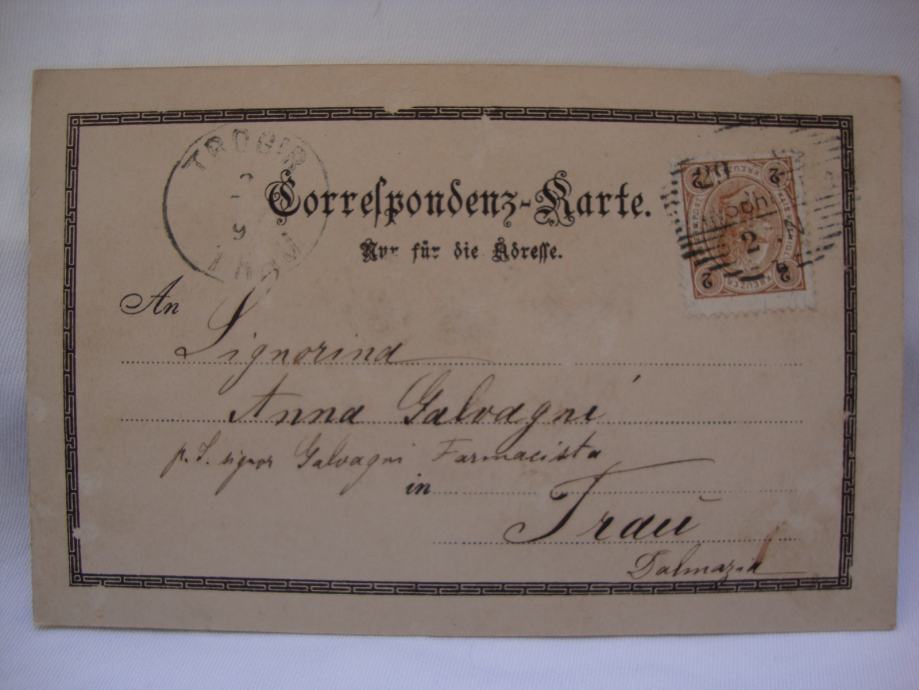 TROGIR
TRAÙ
Correspondenz-Karte.
Nur für die Adresse.
2 KREUZER 2
2 2
An
Signorina
Anna Galvagni
p. S. signor Galvagni Farmacista
in
Traù
Dalmazia